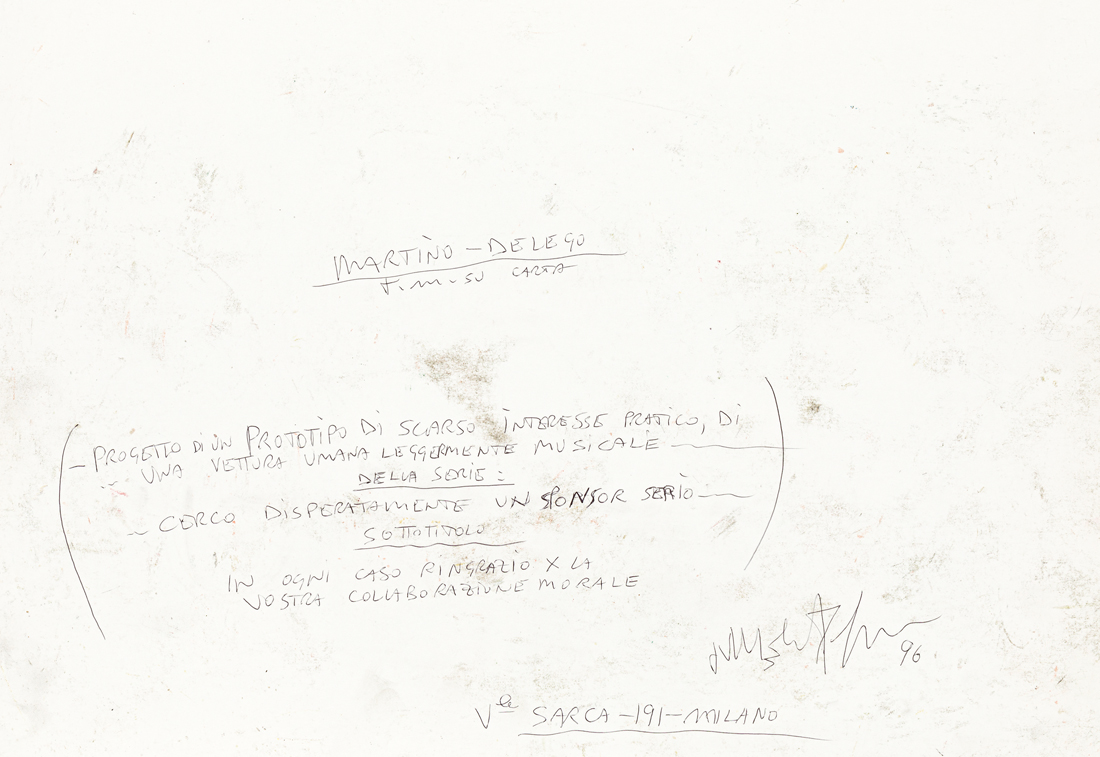 MARTINO - DELEGO
t.m. su CARTA
- PROGETTO DI UN PROTOTIPO DI SCARSO INTERESSE PRATICO, DI
UNA VETTURA UMANA LEGGERMENTE MUSICALE -
DELLA SERIE:
- CERCO DISPERATAMENTE UN SPONSOR SERIO -
SOTTOTITOLO
IN OGNI CASO RINGRAZIO X LA
VOSTRA COLLABORAZIONE MORALE
96.
Vle SARCA - 191 - MILANO